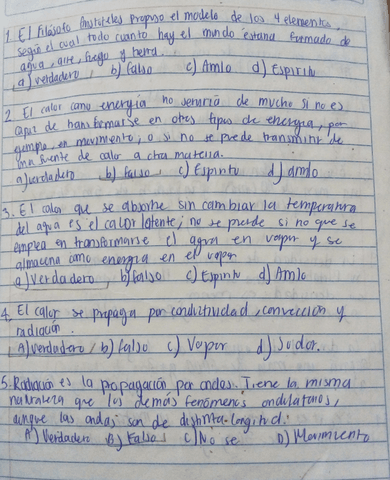 1. El filósofo Aristoteles Propuso el modelo de los 4 elementos
según el cual todo cuanto hay el mundo estaria formado de
agua, aire, fuego y tierra.
a) verdadero, b) falso c) Amlo d) Espiritu
2. El calor como energía no serviria de mucho si no es
capaz de transformarse en otros tipos de energia, por
ejemplo, en movimiento, o si no se puede transmitir de
una fuente de calor a otra materia.
a) verdadero, b) falso, c) Espiritu d) amlo
3. El calor que se absorbe sin cambiar la temperatura
del agua es el calor latente; no se pierde si no que se
emplea en transformarse el agua en vapor y se
almacena como energía en el vapor
a) verdadero, b) falso c) Espiritu d) Amlo
4. El calor se propaga por conductividad, convección y
radiación.
A) verdadero, b) falso c) Vapor d) Sudor.
5. Radiación es la propagación por ondas. Tiene la misma
naturaleza que los demás fenómenos ondulatorios,
aunque las ondas son de distinta longitud.
A) Verdadero B) Falso C) No se D) Movimiento